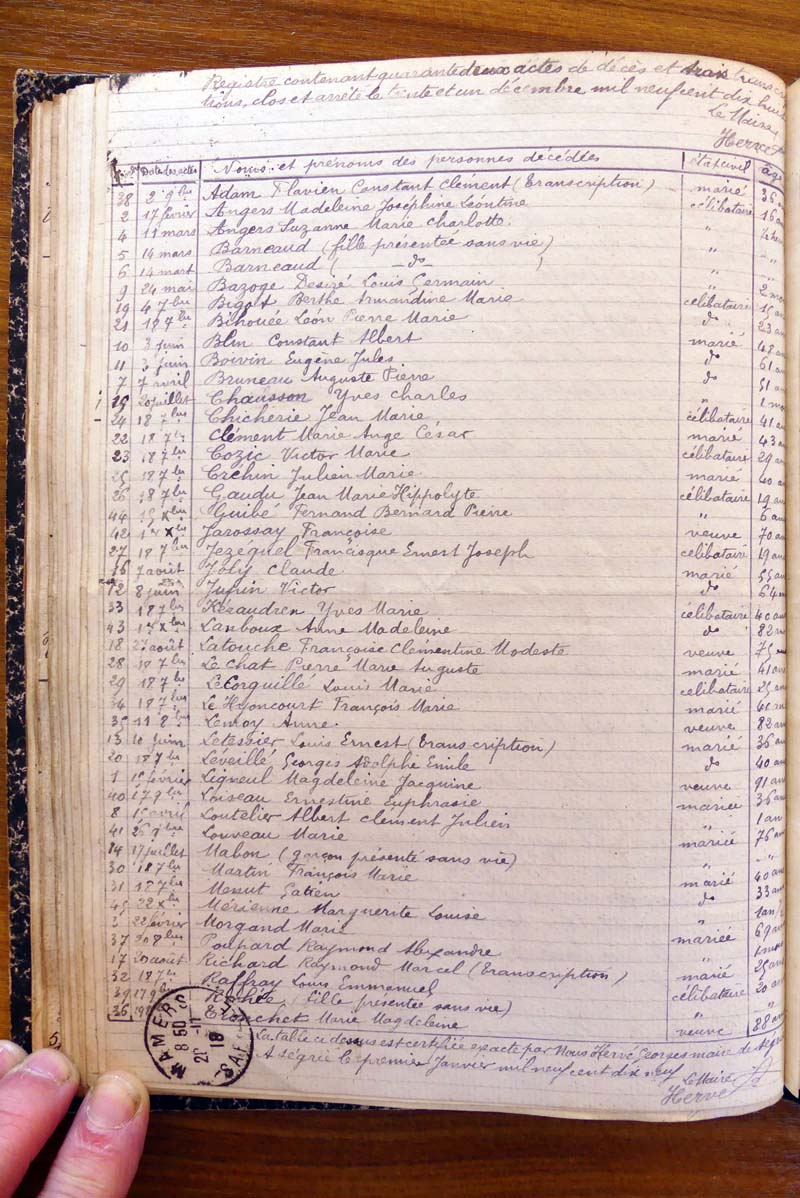 Registre contenant quarante deux actes de décès et trois transcrip
tions, clos et arrêté le trente et un décembre mil neuf cent dix huit
Le Maire
Hervé
Nos Date des actes Noms et prénoms des personnes décédées état civil âge
38 2 9bre Adam Flavien Constant Clément (Transcription) marié 36 an
2 17 février Angers Madeleine Joséphine Léontine célibataire 16 a
4 11 mars Angers Suzanne Marie Charlotte. "
5 14 mars Barneaud (fille présentée sans vie) " "
6 14 mart Barneaud ( do ) "
9 24 mai Bazoge Desiré Louis Germain " 2 mo
19 4 7bre Bigot Berthe Armandine Marie célibataire 15 a
21 18 7bre Bihouée Léon Pierre Marie do 23 an
10 3 juin Blin Constant Albert marié 48 an
11 3 juin Boivin Eugène Jules do 61 a
7 7 avril Bruneau Auguste Pierre do 51 a
15 20 juillet Chausson Yves Charles " 1 mo
24 18 7bre Chicherie Jean Marie célibataire 41 a
22 18 7bre Clément Marie Ange César marié 43 a
23 18 7bre Cozic Victor Marie célibataire 29 an
25 18 7bre Crehin Julien Marie marié 40 a
26 18 7bre Gaudu Jean Marie Hippolyte célibataire 19 an
44 15 Xbre Guibé Fernand Bernard Pierre " 6 an
42 1er Xbre Jarossay Françoise veuve 70 an
27 18 7bre Jezequel Francisque Ernest Joseph célibataire 19 an
16 7 août Joly Claude marié 55 an
12 8 juin Jupin Victor do 64
33 18 7bre Kéraudren Yves Marie célibataire 40 an
43 1er Xbre Lanboux Anne Madeleine do 82 a
18 27 août Latouche Françoise Clémentine Modeste veuve 75 an
28 18 7bre Le Chat Pierre Marie Auguste marié 41 an
29 18 7bre Le Corguillé Louis Marie célibataire 25 an
34 18 7bre Le Hyoncourt François Marie marié 40 an
35 11 8bre Leroy Anne. veuve 82 an
13 10 juin Letessier Louis Ernest (Transcription) marié 36 an
20 18 7bre Léveillé Georges Adolphe Emile do 40 an
1 février Ligneul Magdeleine Jacquine veuve 91 an
40 17 9bre Loiseau Ernestine Euphrasie mariée 36 a
8 15 avril Loutelier Albert Clément Julien " 1 an
41 26 9bre Louveau Marie mariée 76 a
14 17 juillet Mabon (garçon présenté sans vie) " "
30 18 7bre Martin François Marie marié 40 an
31 18 7bre Menut Gatien do 33 an
45 22 Xbre Mérienne Marguerite Louise " 1 an
3 22 février Morgand Marie mariée 69 a
37 20 8bre Poupard Raymond Alexandre " 1 mo
17 20 août Richard Raymond Marcel (Transcription) marié 25 an
32 18 7bre Raffray Louis Emmanuel célibataire 20 an
39 17 9bre (fille présentée sans vie) "
36 Marie Magdeleine veuve 88 an
La table ci dessus est certifiée exacte par Nous Hervé Georges maire de Ségrie
A ségrie le premier Janvier mil neuf cent dix neuf
Le Maire
Hervé
MAMERS
8 50
SARTHE